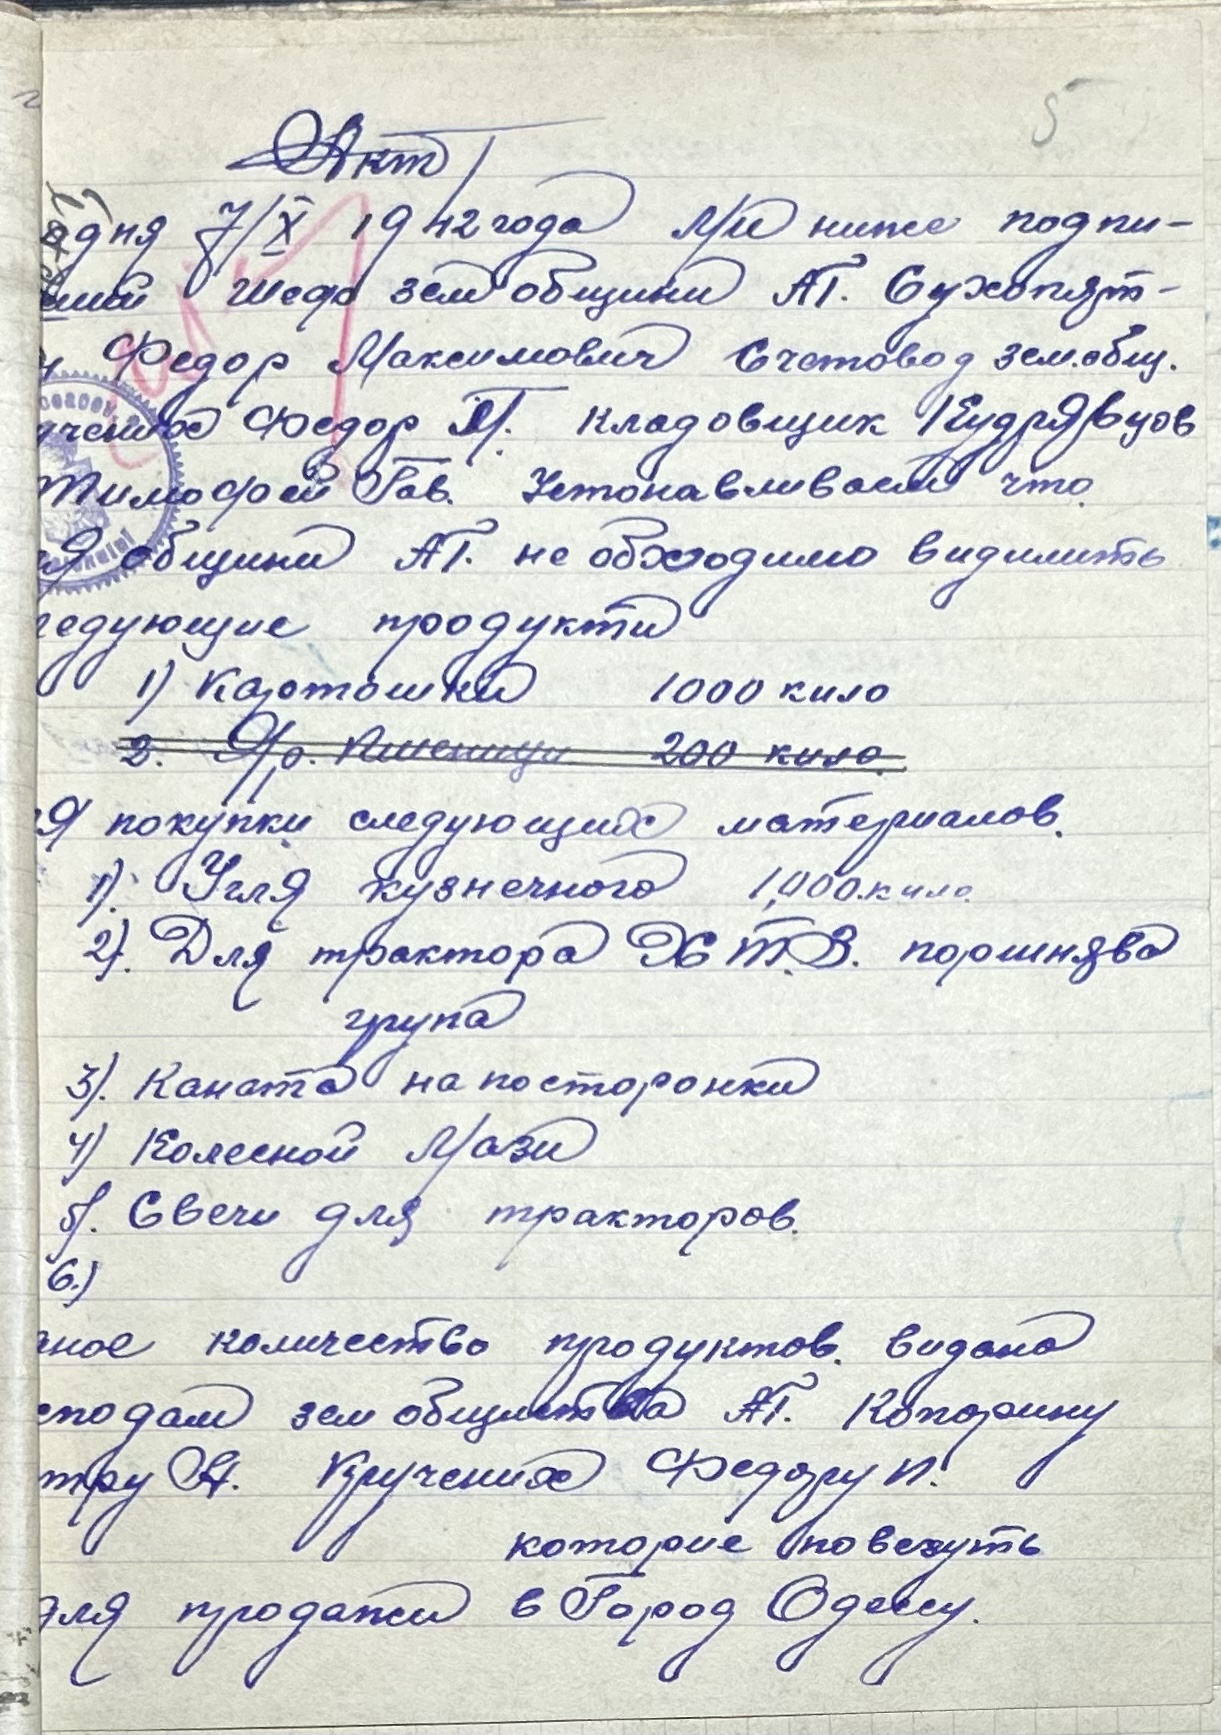 5
Акт
дня 7/X 1942 года Ми ниже подпи-
ший Шеф зем общини АГ. Сухопят-
Федор Максимович Счетовод зем.общ.
учених Федор П. кладовщик Кудрявцов
Тимофей Гав. Устонавливаем что
я общини АГ. не обходимо видилить
ледующие продукти
1) Картошки 1000 кило
2. Яр. Пшеници 200 кило.
я покупки следующих материалов.
1). Угля кузнечного 1,000.кило.
2). Для трактора ХТ.З. поршнява
група
3). Каната на посторонки
4) Колесной Мази
5). Свечи для тракторов.
6.)
ное количество продуктов. видано
сподам зем общинства АГ. Копорину
тру А. Кручених Федору П.
которие повезуть
для продажи в Город Одессу.